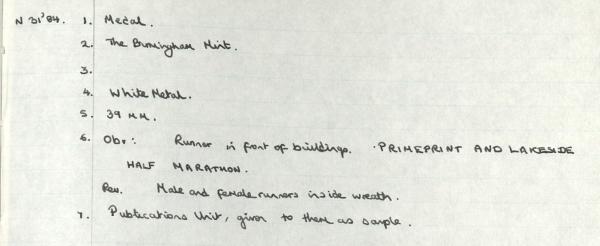 N 31'84. 1. Medal.
2. The Birmingham Mint.
3.
4. White Metal.
5. 39 MM.
6. Obv: Runner in front of buildings. ·PRIMEPRINT AND LAKESIDE
HALF MARATHON.
Rev. Male and female runners inside wreath.
7. Publications Unit, given to them as sample.